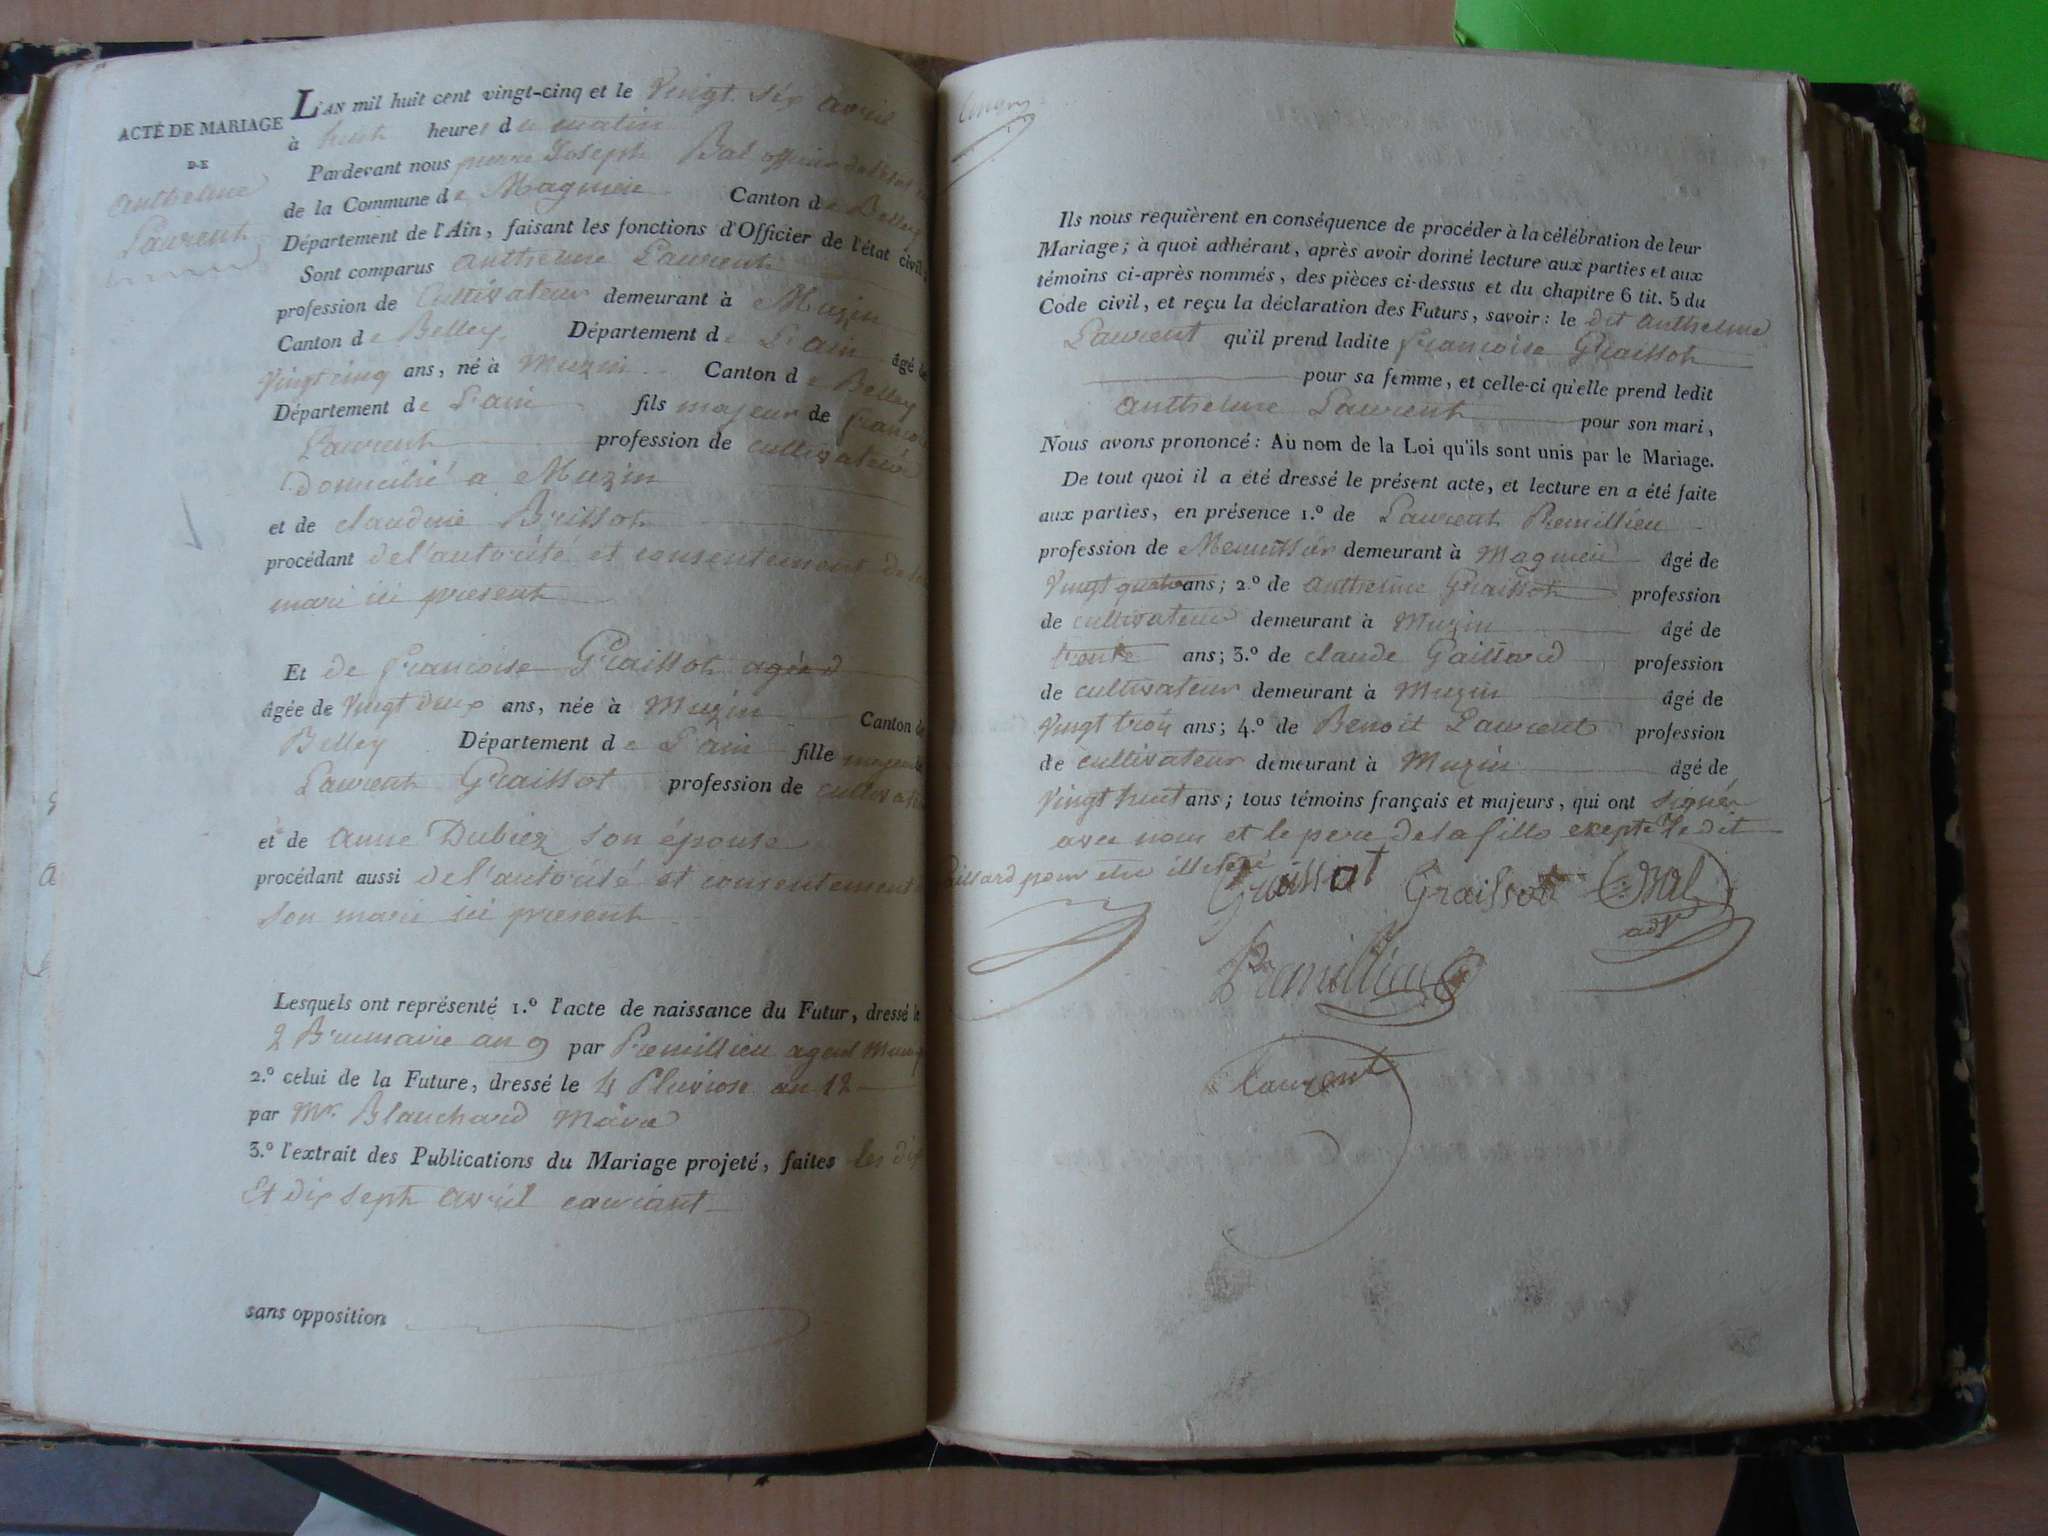 ACTE DE MARIAGE
DE
Anthelme
Laurent
L'AN mil huit cent vingt-cinq et le Vingt six avril
à huit heures du matin
Pardevant nous pierre Joseph Bal officier de l'état
de la Commune de Magnieu Canton de Belley
Département de l'Ain, faisant les fonctions d'Officier de l'état civil:
Sont comparus Anthelme Laurent
profession de Cultivateur demeurant à Muzin
Canton de Belley Département de L'ain âgé de
Vingt cinq ans, né à Muzin Canton de Belley
Département de L'ain fils majeur de françois
Laurent profession de cultivateur
Domicilié a Muzin
et de claudine Brissot
procédant de l'autorité et consentement de son
mari ici present
Et de francoise Graissot agée d
âgée de Vingt deux ans, née à Muzin Canton de
Belley Département de L'ain fille majeure
Laurent Graissot profession de cultivateur
et de Anne Dubiez son épouse
procédant aussi de l'autorité et consentement
son mari ici present
Lesquels ont représenté 1.º l'acte de naissance du Futur, dressé le
2 Brumaire an 9 par Premillieu agent Munip
2.º celui de la Future, dressé le 4 Pluviose an 12
par Mr. Blanchard Maire
3.º l'extrait des Publications du Mariage projeté, faites les dix
Et dix sept avril courant
sans opposition
Ils nous requièrent en conséquence de procéder à la célébration de leur
Mariage; à quoi adhérant, après avoir donné lecture aux parties et aux
témoins ci-après nommés, des pièces ci-dessus et du chapitre 6 tit. 5 du
Code civil, et reçu la déclaration des Futurs, savoir: le dit Anthelme
Laurent qu'il prend ladite francoise Graissot
pour sa femme, et celle-ci qu'elle prend ledit
Anthelme Laurent pour son mari,
Nous avons prononcé: Au nom de la Loi qu'ils sont unis par le Mariage.
De tout quoi il a été dressé le présent acte, et lecture en a été faite
aux parties, en présence 1.º de Laurent Premillieu
profession de Menuisier demeurant à Magnieu âgé de
Vingt quatre ans; 2.º de Anthelme Graissot profession
de cultivateur demeurant à Muzin âgé de
trente ans; 3.º de claude Gaillard profession
de cultivateur demeurant à Muzin âgé de
Vingt trois ans; 4.º de Benoit Laurent profession
de cultivateur demeurant à Muzin âgé de
Vingt huit ans; tous témoins français et majeurs, qui ont signés
avec nous et le pere de la fille exepté le dit
Gaillard pour etre illiteré
Graissot Graissot Bal
adjt
Premillieu
Laurent